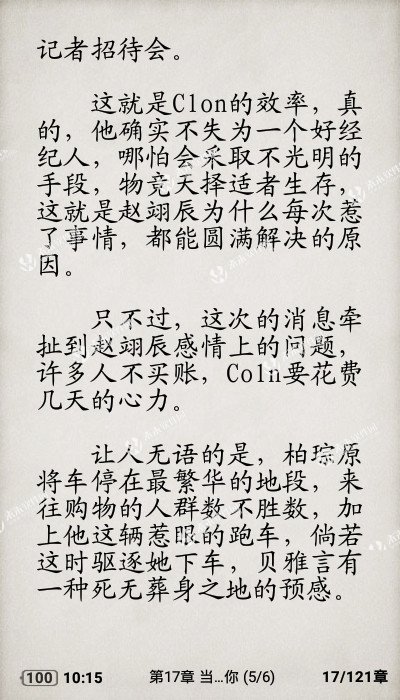 记者招待会。
这就是Clon的效率，真
的，他确实不失为一个好经
纪人，哪怕会采取不光明的
手段，物竞天择适者生存，
这就是赵翊辰为什么每次惹
了事情，都能圆满解决的原
因。
只不过，这次的消息牵
扯到赵翊辰感情上的问题，
许多人不买账，Coln要花费
几天的心力。
让人无语的是，柏琮原
将车停在最繁华的地段，来
往购物的人群数不胜数，加
上他这辆惹眼的跑车，倘若
这时驱逐她下车，贝雅言有
一种死无葬身之地的预感。
100 10:15 第17章 当…你 (5/6) 17/121章